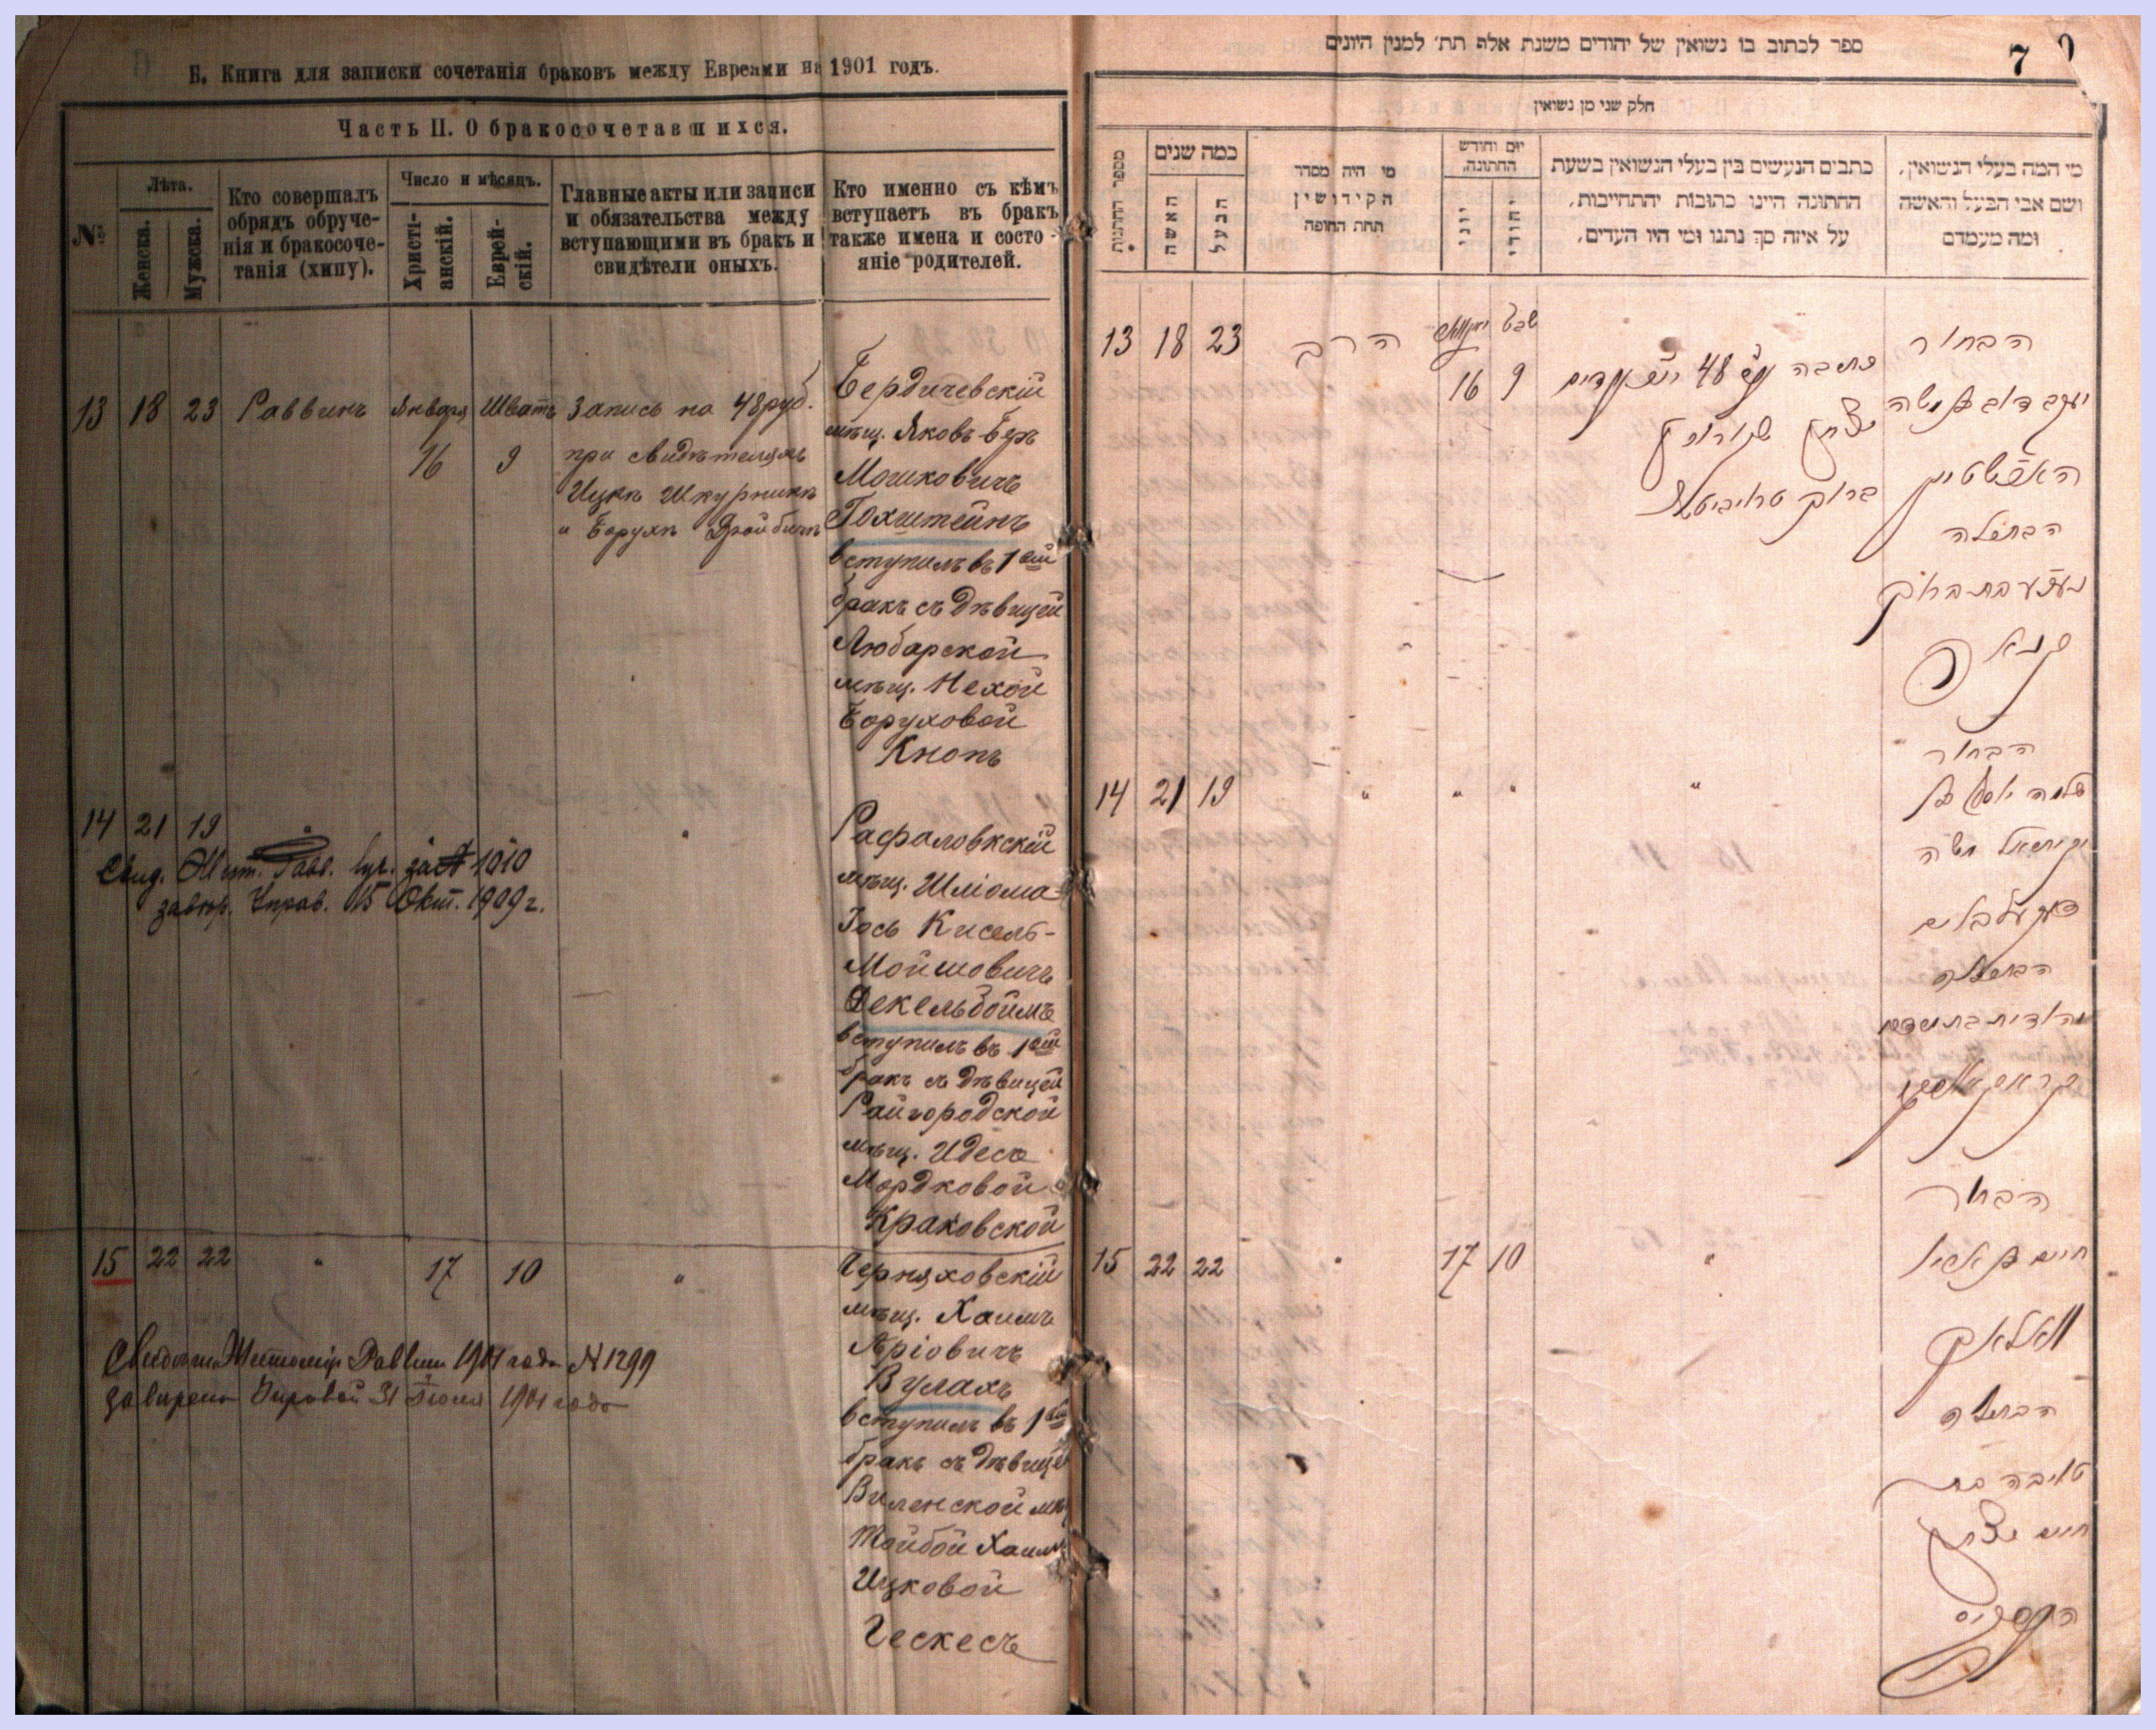 Б. Книга для записки сочетанія браковъ между Евреями на 1901 годъ.
Часть II. О бракосочетавшихся.
№
Лѣта.
Женска.
Мужска.
Кто совершалъ
обрядъ обруче-
нія и бракосоче-
танія (хипу).
Число и мѣсяцъ.
Христі-
анскій.
Еврей-
скій.
Главные акты или записи
и обязательства между
вступающими въ бракъ и
свидѣтели оныхъ.
Кто именно съ кѣмъ
вступаетъ въ бракъ
также имена и состо-
яніе родителей.
13 18 23 Раввинъ Января Шватъ Запись на 48 руб.
16 9 при свидѣтеляхъ
Ицкѣ Шкурникѣ
и Борухѣ
Бердичевскій
мѣщ. Яковъ Беръ
Мошковичъ
Гохштейнъ
вступилъ въ 1ый
бракъ съ дѣвицей
Любарской
мѣщ. Нехой
Боруховой
Кнопъ
14 21 19 " "
Свид. Жит. Равв. 1910
завѣр. Управ. 15 Окт. 1909 г.
Рафаловкскій
мѣщ. Шліома
Іось Кисель-
Мойшовичъ
Фекельбоймъ
вступилъ въ 1ый
бракъ съ дѣвицей
Райгородской
мѣщ. Идесе
Мордковой
Краковской
15 22 22 " 17 10 "
Житомір Раввин 1901 года № 1299
Управой 31 Іюля 1901 года
Черняховскій
мѣщ. Хаимъ
Аріовичъ
Вулахъ
вступилъ въ 1ый
бракъ съ дѣвицей
Виленской мѣщ
Тойбой Хаимъ
Ицковой
Гескесъ
ספר לכתוב בו נשואין של יהודים משנת אלף תת׳ למנין היונים
7
חלק שני מן נשואין
מספר החתונות
כמה שנים
האשה
הבעל
מי היה מסדר
הקידושין
תחת החופה
יום וחודש
החתונה,
יוני
יהודי
כתבים הנעשים בין בעלי הנשואין בשעת
החתונה היינו כתובות יהתחייבות,
על איזה סך נתנו ומי היו העדים,
מי המה בעלי הנשואין,
ושם אבי הבעל והאשה
ומה מעמדם
13 18 23 הרב יאנואר שבט
16 9
כתובה 48
יצחק
ברוך
הבחור
יעקב דוב ב משה
האפשטיין
הבתולה
נעכע בת ברוך
קנאפ
14 21 19 " " " "
הבחור
שלמה יוסף ב
יקותיאל משה
פעקעלבוים
הבתולה
יהודית בת מרדכי
קראקאווסקי
15 22 22 " 17 10 "
הבחור
חיים ב
וואלאך
הבתולה
טויבה בת
חיים יצחק